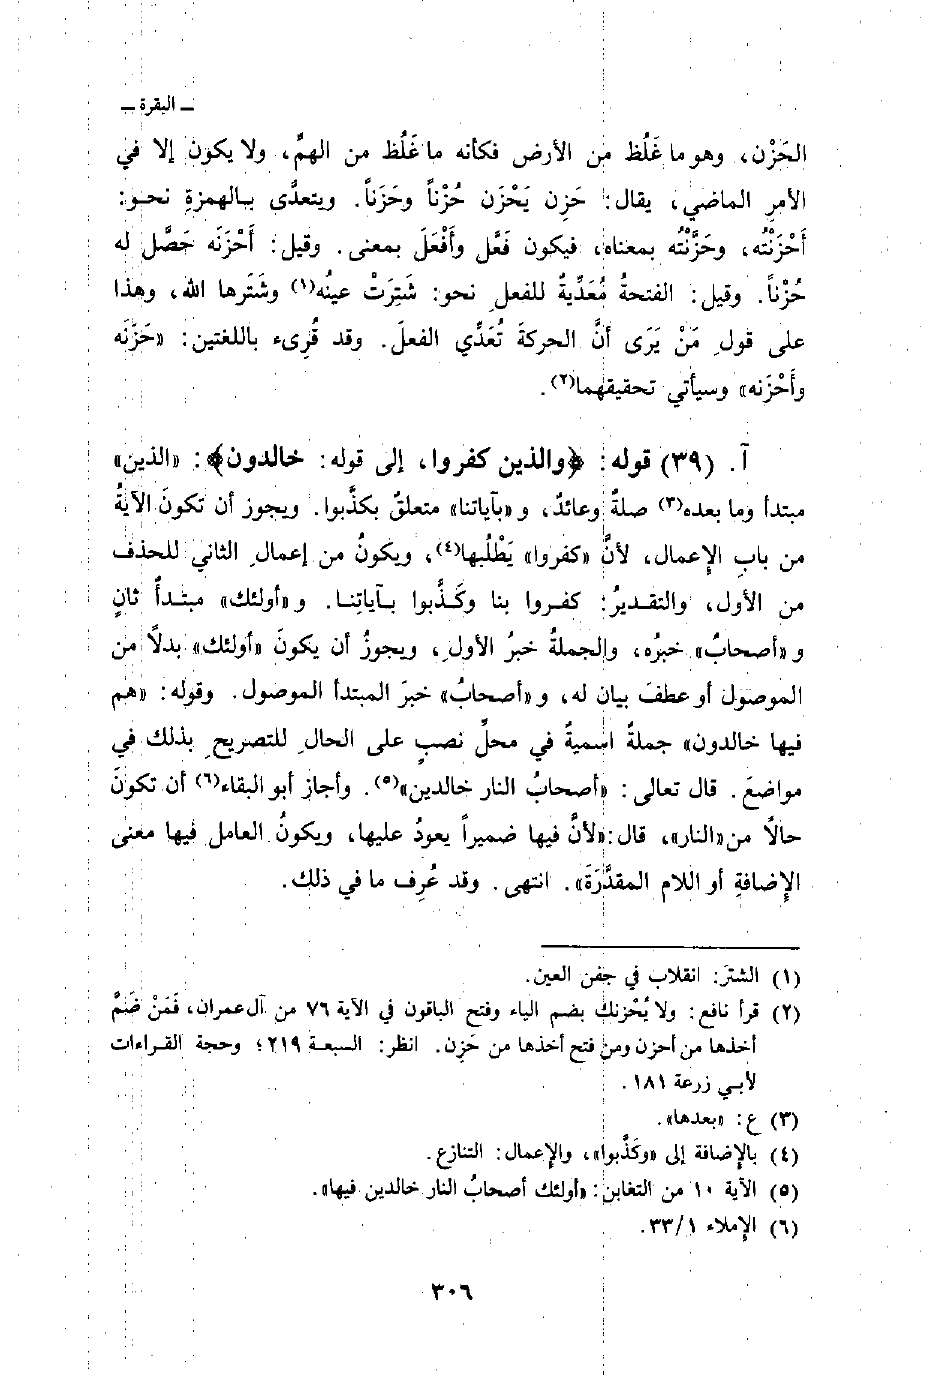 ـ البقرة ـ
الحَزْن، وهو ما غَلُظ من الأرض فكأنه ما غَلُظ من الهمِّ، ولا يكون إلا في
الأمرِ الماضي، يقال: حَزِن يَحْزَن حُزْناً وحَزَناً. ويتعدَّى بالهمزةِ نحو:
أَحْزَنْتُه، وحَزَّنْتُه بمعناه، فيكون فَعَّل وأَفْعَلَ بمعنى. وقيل: أَحْزَنَه حَصَّل له
حُزْناً. وقيل: الفتحةُ مُعَدِّيةٌ للفعلِ نحو: شَتِرَتْ عينُه(١) وشَتَرها الله، وهذا
على قولِ مَنْ يَرَى أنَّ الحركةَ تُعَدِّي الفعلَ. وقد قُرِىء باللغتين: «حَزَنَه
وأَحْزَنه» وسيأتي تحقيقهما(٢).
آ. (٣٩) قوله: ﴿والذين كفروا، إلى قوله: خالدون﴾: «الذين»
مبتدأ وما بعده(٣) صلةٌ وعائدٌ، و «بآياتنا» متعلقٌ بكذَّبوا. ويجوز أن تكونَ الآيةُ
من بابِ الإِعمال، لأنَّ «كفروا» يَطْلُبها(٤)، ويكونُ من إعمالِ الثاني للحذف
من الأول، والتقديرُ: كفروا بنا وكَذَّبوا بآياتِنا. و «أولئك» مبتدأٌ ثانٍ
و «أصحابُ» خبرُه، والجملةُ خبرُ الأولِ، ويجوزُ أن يكونَ «أولئك» بدلاً من
الموصول أو عطفَ بيان له، و «أصحابُ» خبرَ المبتدأ الموصول. وقوله: «هم
فيها خالدون» جملةٌ اسميةٌ في محلِّ نصبٍ على الحالِ للتصريحِ بذلك في
مواضعَ. قال تعالى: «أصحابُ النار خالدين»(٥). وأجاز أبو البقاء(٦) أن تكونَ
حالاً من «النار»، قال: «لأنَّ فيها ضميراً يعودُ عليها، ويكونُ العامل فيها معنى
الإِضافةِ أو اللام المقدَّرَة». انتهى. وقد عُرِف ما في ذلك.
(١) الشتَر: انقلاب في جفن العين.
(٢) قرأ نافع: ولا يُحْزنك بضم الياء وفتح الباقون في الآية ٧٦ من آل عمران، فَمَنْ ضَمَّ
أخذها من أحزن ومن فتح أخذها من حَزِن. انظر: السبعة ٢١٩؛ وحجة القراءات
لأبي زرعة ١٨١.
(٣) ع: «بعدها».
(٤) بالإِضافة إلى «وكَذَّبوا»، والإِعمال: التنازع.
(٥) الآية ١٠ من التغابن: «أولئك أصحابُ النار خالدين فيها».
(٦) الإِملاء ٣٣/١.
٣٠٦